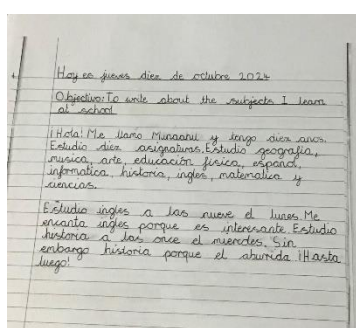 Hoy es jueves diez de octubre 2024
Objectivo: To write about the subjects I learn
at school
¡Hola! Me llamo y tengo diez anos.
Estudio diez asignaturas. Estudio geografía,
musica, arte, educación física, español,
informatica, historia, ingles, matematica y
ciencias.
Estudio ingles a las nueve el lunes. Me
encanta ingles porque es interesante. Estudio
historia a las once el miercoles. Sin
embargo historia porque el aburrida ¡Hasta
luego!